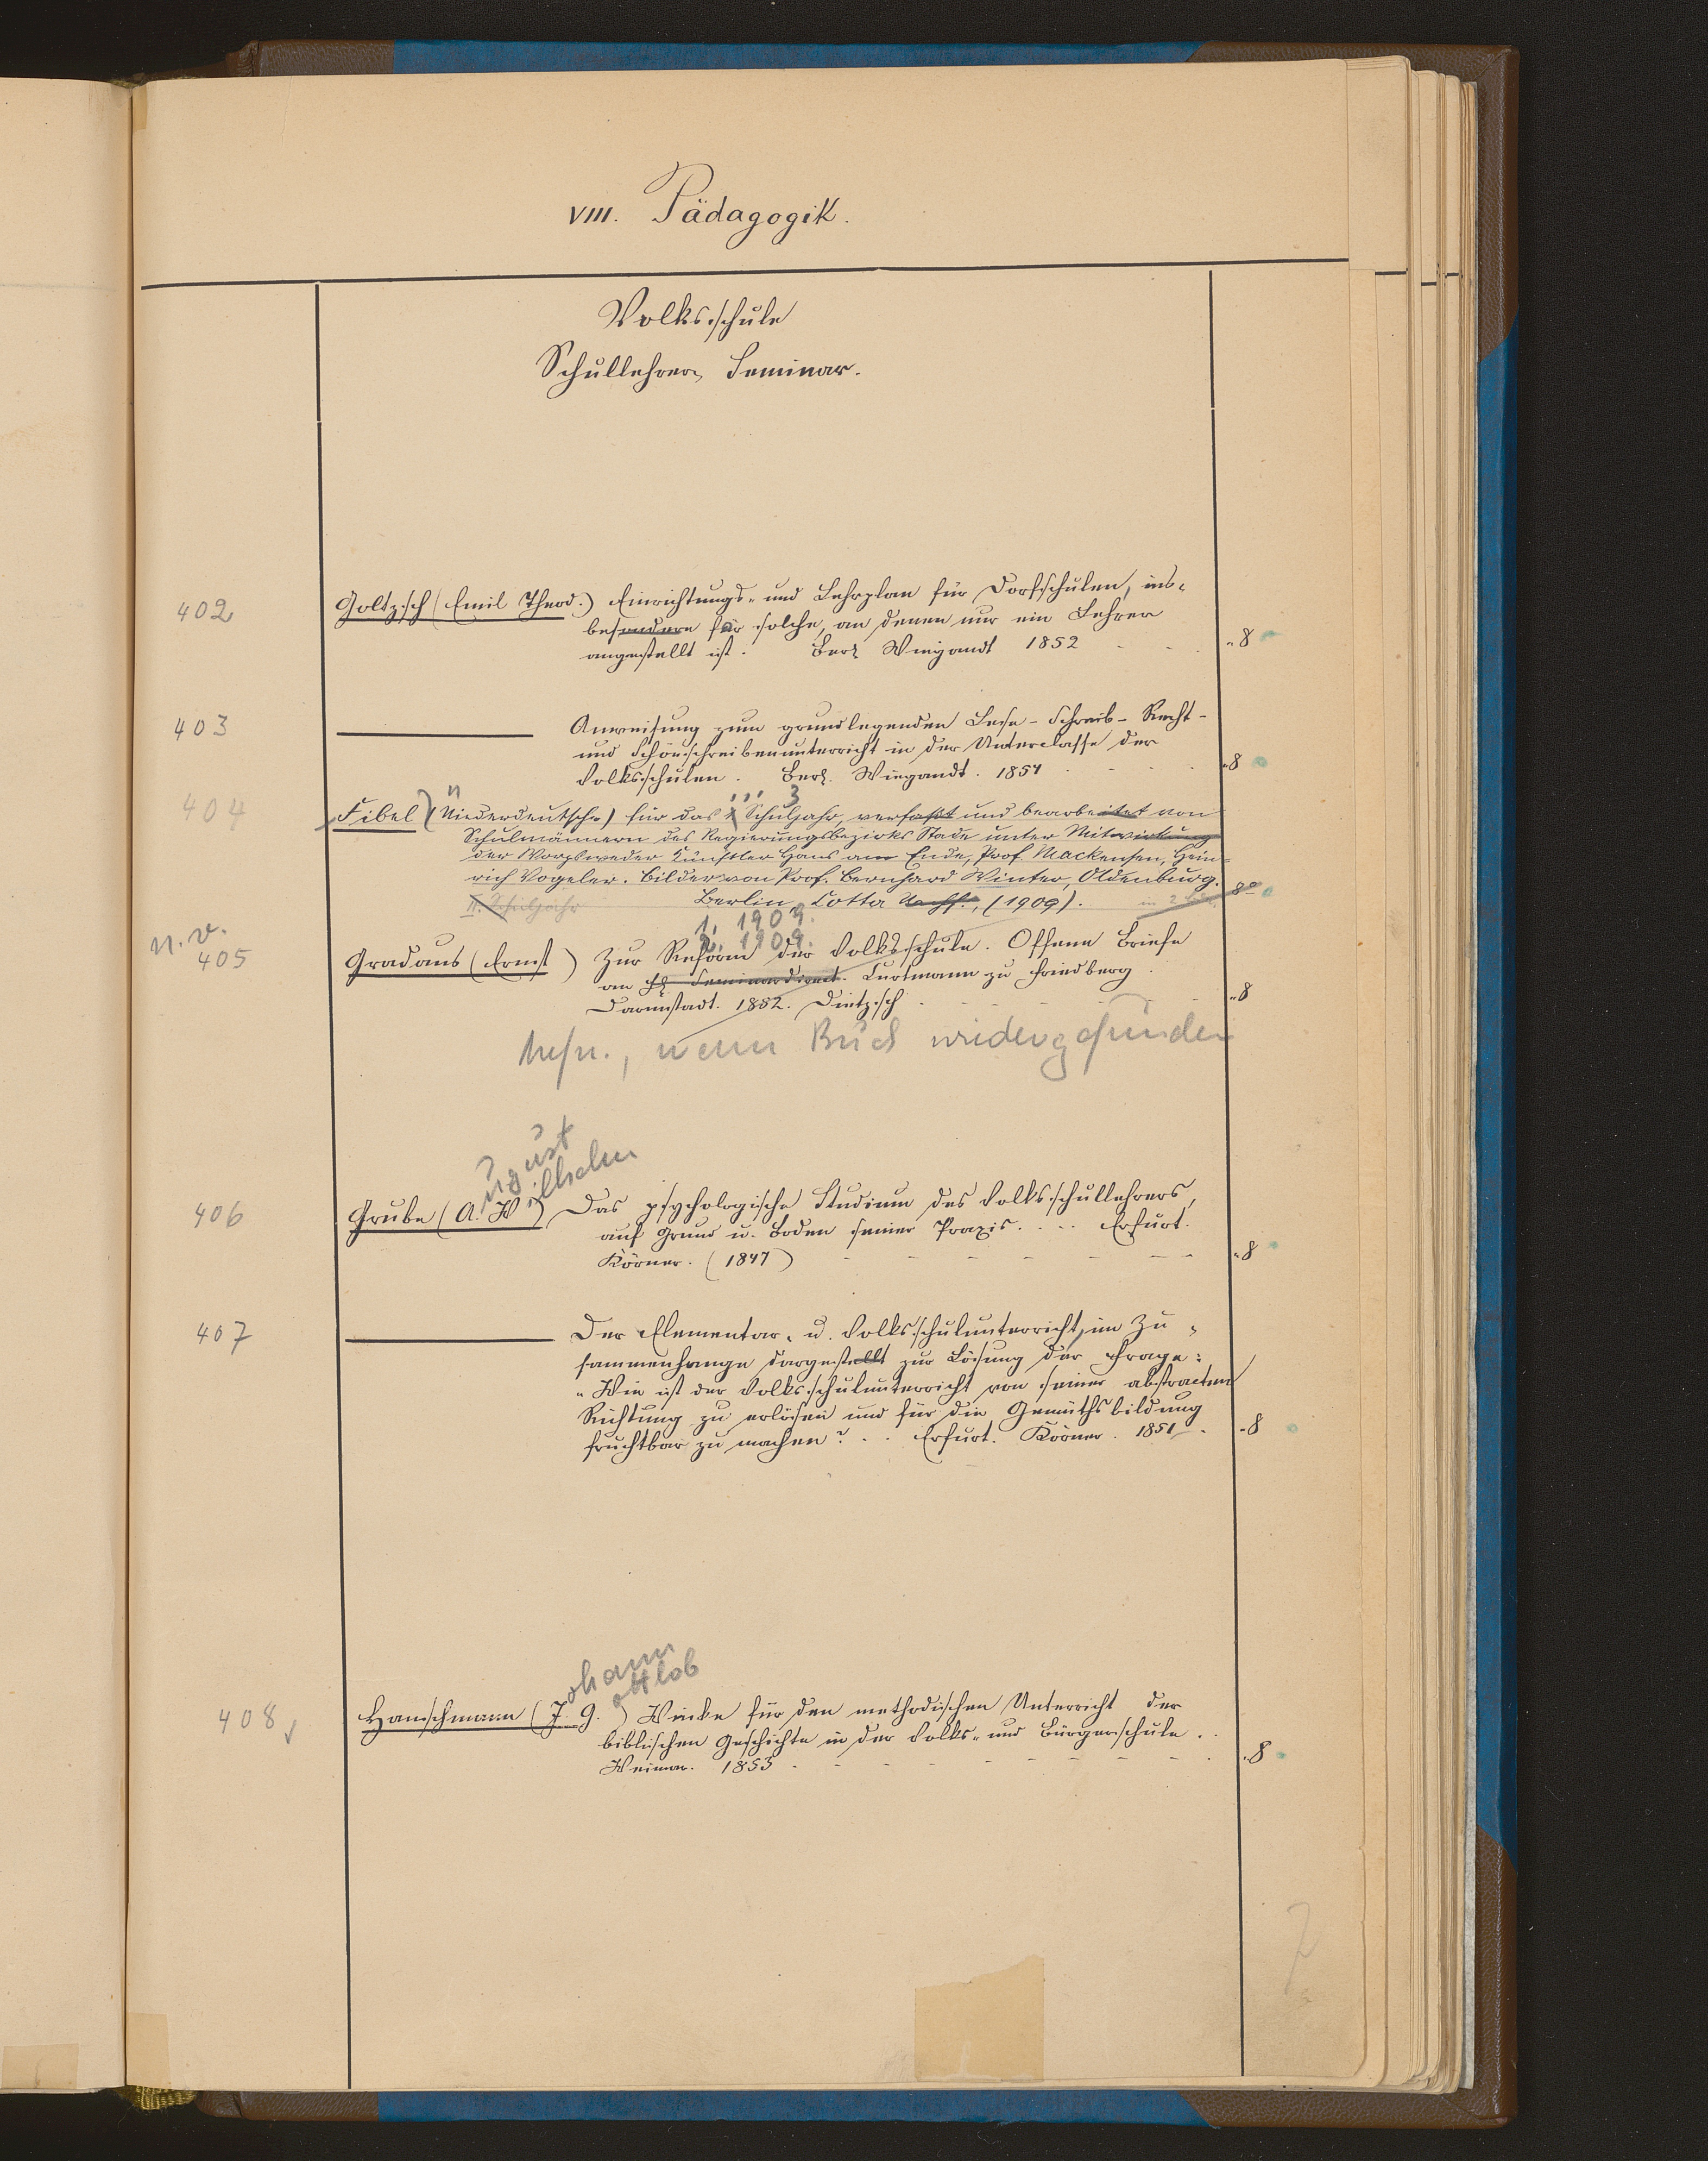 VIII. Pädagogik.
Volksschule
Schullehrer Seminar.
402 Goltzsch (Emil Theod.) Einrichtungs- und Lehrplan für Dorfschulen, ins-
besondere für solche, an denen nur ein Lehrer
angestellt ist. Berl Wiegandt 1852 - - . "8
403 ——— Anweisung zum grundlegenden Lese- Schreib- Recht-
und Schönschreibenunterricht in der Unterclasse der
Volksschulen. Berl. Wiegandt. 1854 . . . . "8
3
404 Fibel (Niederdeutsche) für das 1. Schuljahr, verfaßt und bearbeitet von
Schulmännern des Regierungsbezirks Stade unter Mitwirkung
der Worpsweder Künstler Hans am Ende, Prof. Mackensen, Hein-
rich Vogeler. Bilder von Prof. Bernhard Winter, Oldenburg.
II. Schuljahr Berlin, Cotta Nachf., (1909). in 2 8°
1. 1909.
2. 1909.
n. v.
405 Gradaus (Ernst) Zur Reform der Volksschule. Offene Briefe
an H Seminardirect. Curtmann zu Friedberg.
Darmstadt. 1852. Dietzsch . - - - - "8
wenn Buch wiedergefunden
August
Wilhelm
406 Grube (A. W.) Das psychologische Studium des Volksschullehrers,
auf Grund u. Boden seiner Praxis. . . . Erfurt.
Körner. (1847) - - - - - - - "8
407 ——— Der Elementar- u. Volksschulunterricht, im Zu-
sammenhange dargestellt zur Lösung der Frage:
"Wie ist der Volksschulunterricht von seiner abstracten
Richtung zu erlösen und für die Gemüthsbildung
fruchtbar zu machen? . . Erfurt. Körner. 1851. . "8
Johann
Gottlob
408 Hanschmann (J. G.) Winke für den methodischen Unterricht der
biblischen Geschichte in der Volks- und Bürgerschule. .
Weimar. 1853 . - - - - - - - . "8